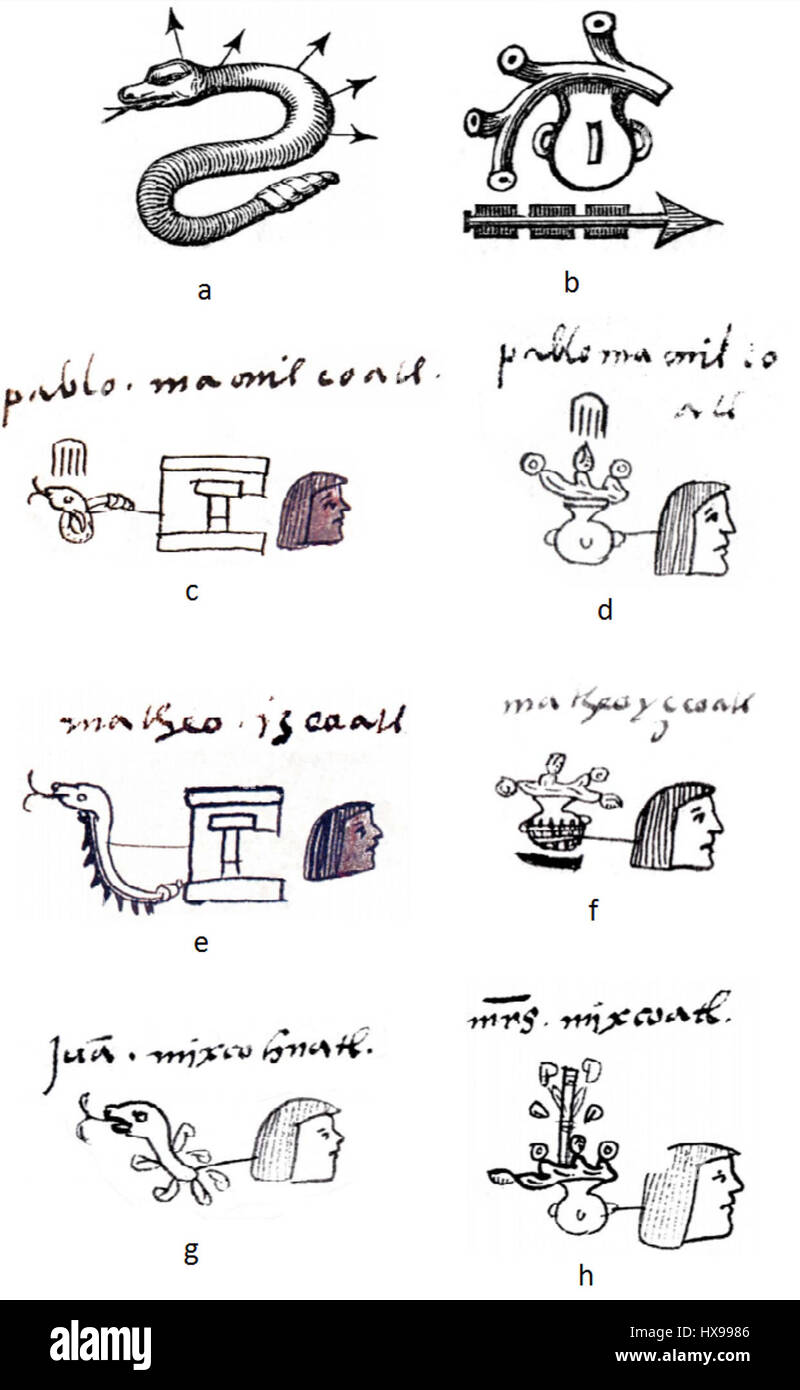 a
b
pablo . macuil coatl .
pablo macuil co
atl
c
d
matheo . izcoatl
matheo yzcoatl
e
f
juā . mixcohuatl .
mrs . mixcoatl .
g
h
alamy
Image ID: HX9986
www.alamy.com